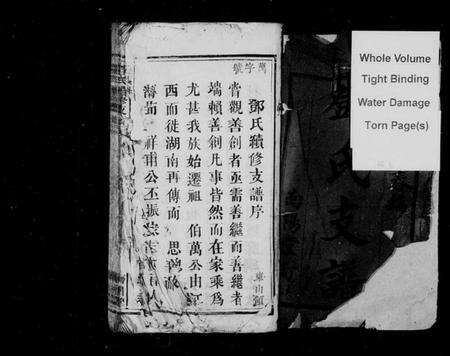 萬字號
鄧氏續修支譜序
嘗觀善創者亟需善繼而善繼者
端賴善創凡事皆然而在家乘爲
尤甚我族始遷祖 伯萬公由江
西而徙湖南再傳而 思
海 祥 公丕振 人
東山
Whole Volume
Tight Binding
Water Damage
Torn Page(s)
氏支譜